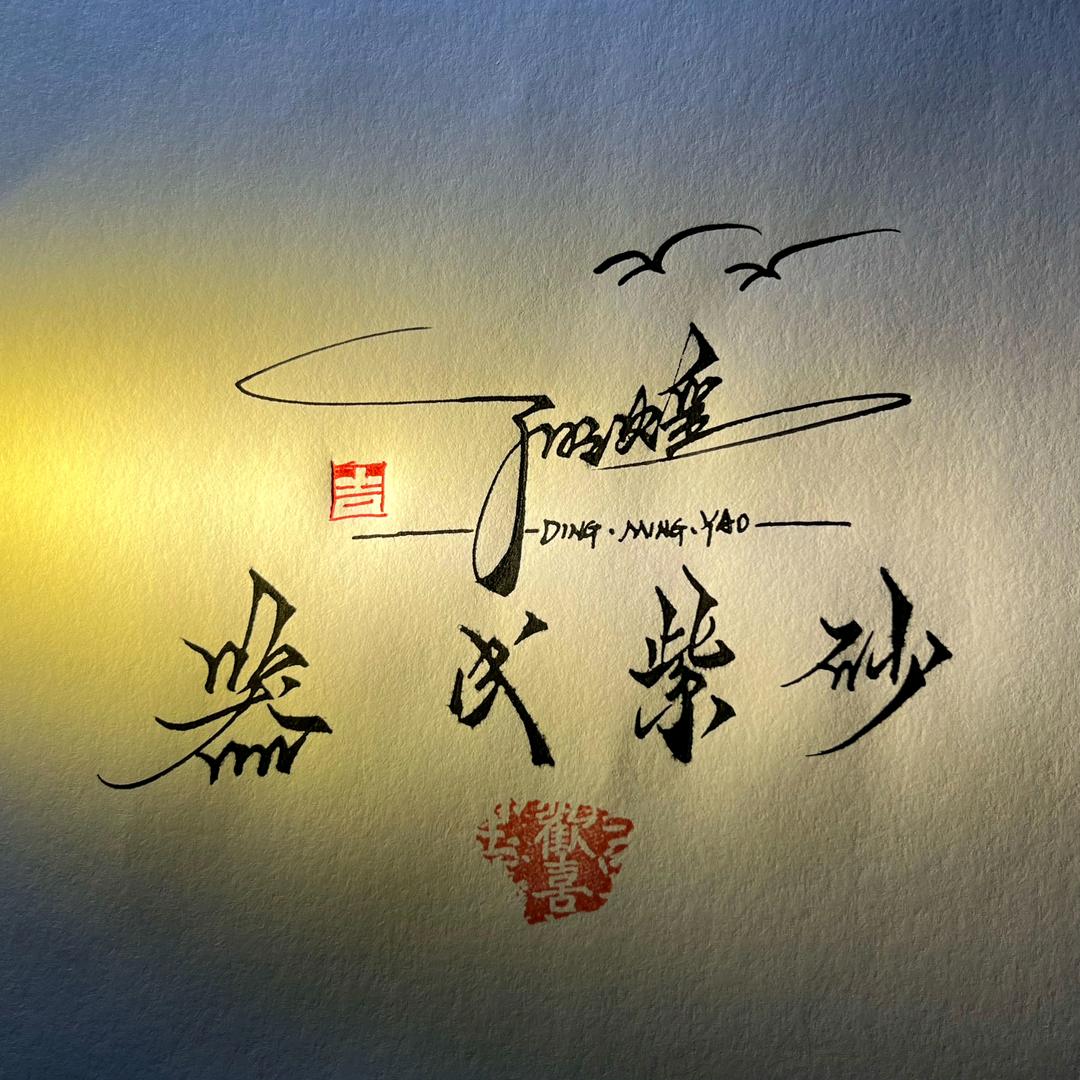 吉
DING·MING·YAO
器氏紫砂
歡喜